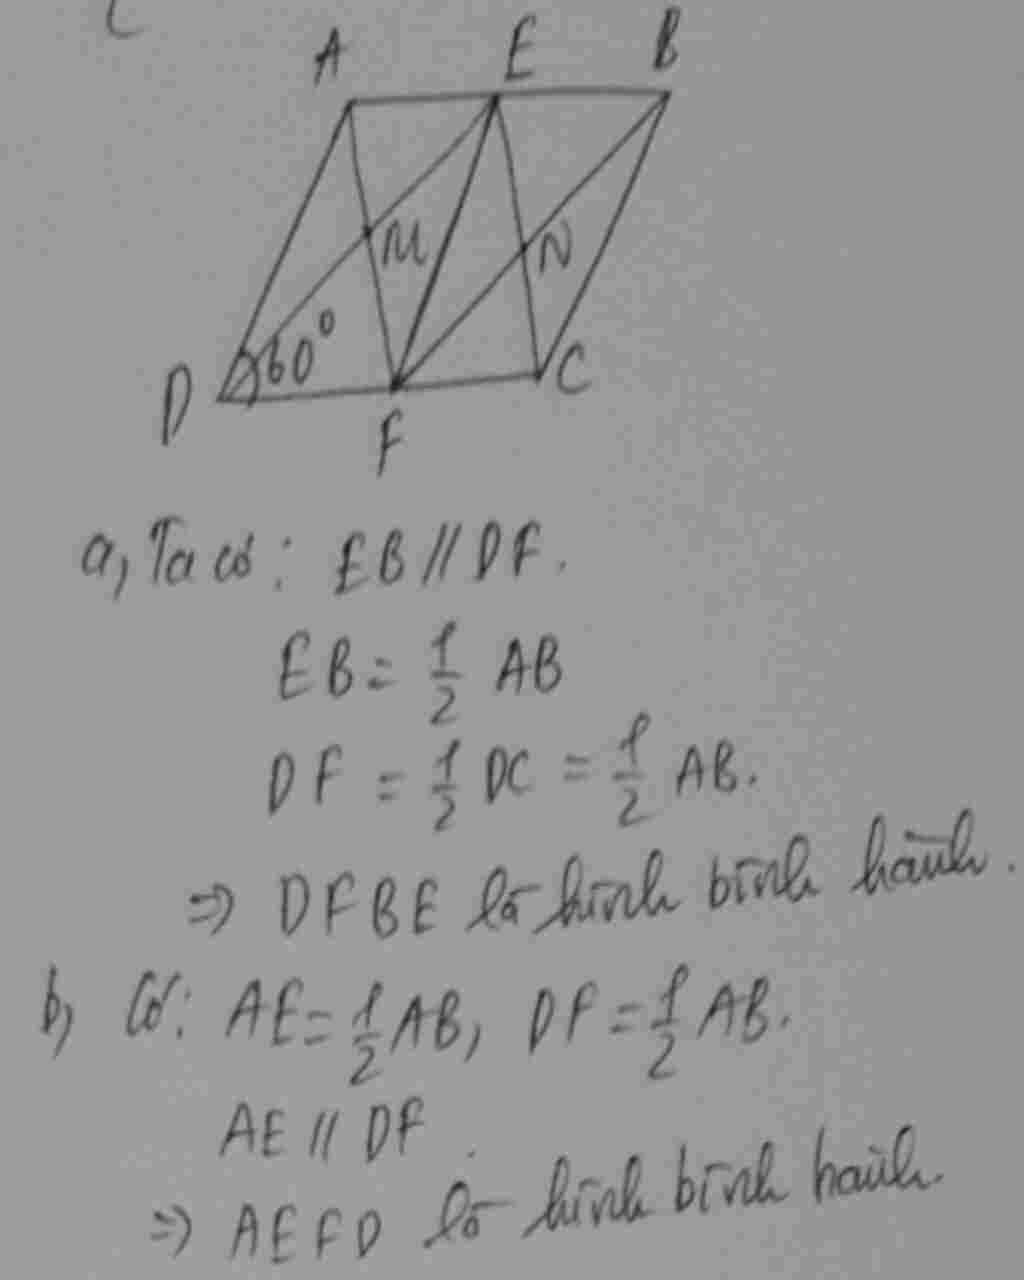 A E B
M N
60°
D C
F
a, Ta có: EB // DF.
EB = 1/2 AB
DF = 1/2 DC = 1/2 AB.
=> DFBE là hình bình hành.
b, Có: AE = 1/2 AB, DF = 1/2 AB.
AE // DF.
=> AEFD là hình bình hành.